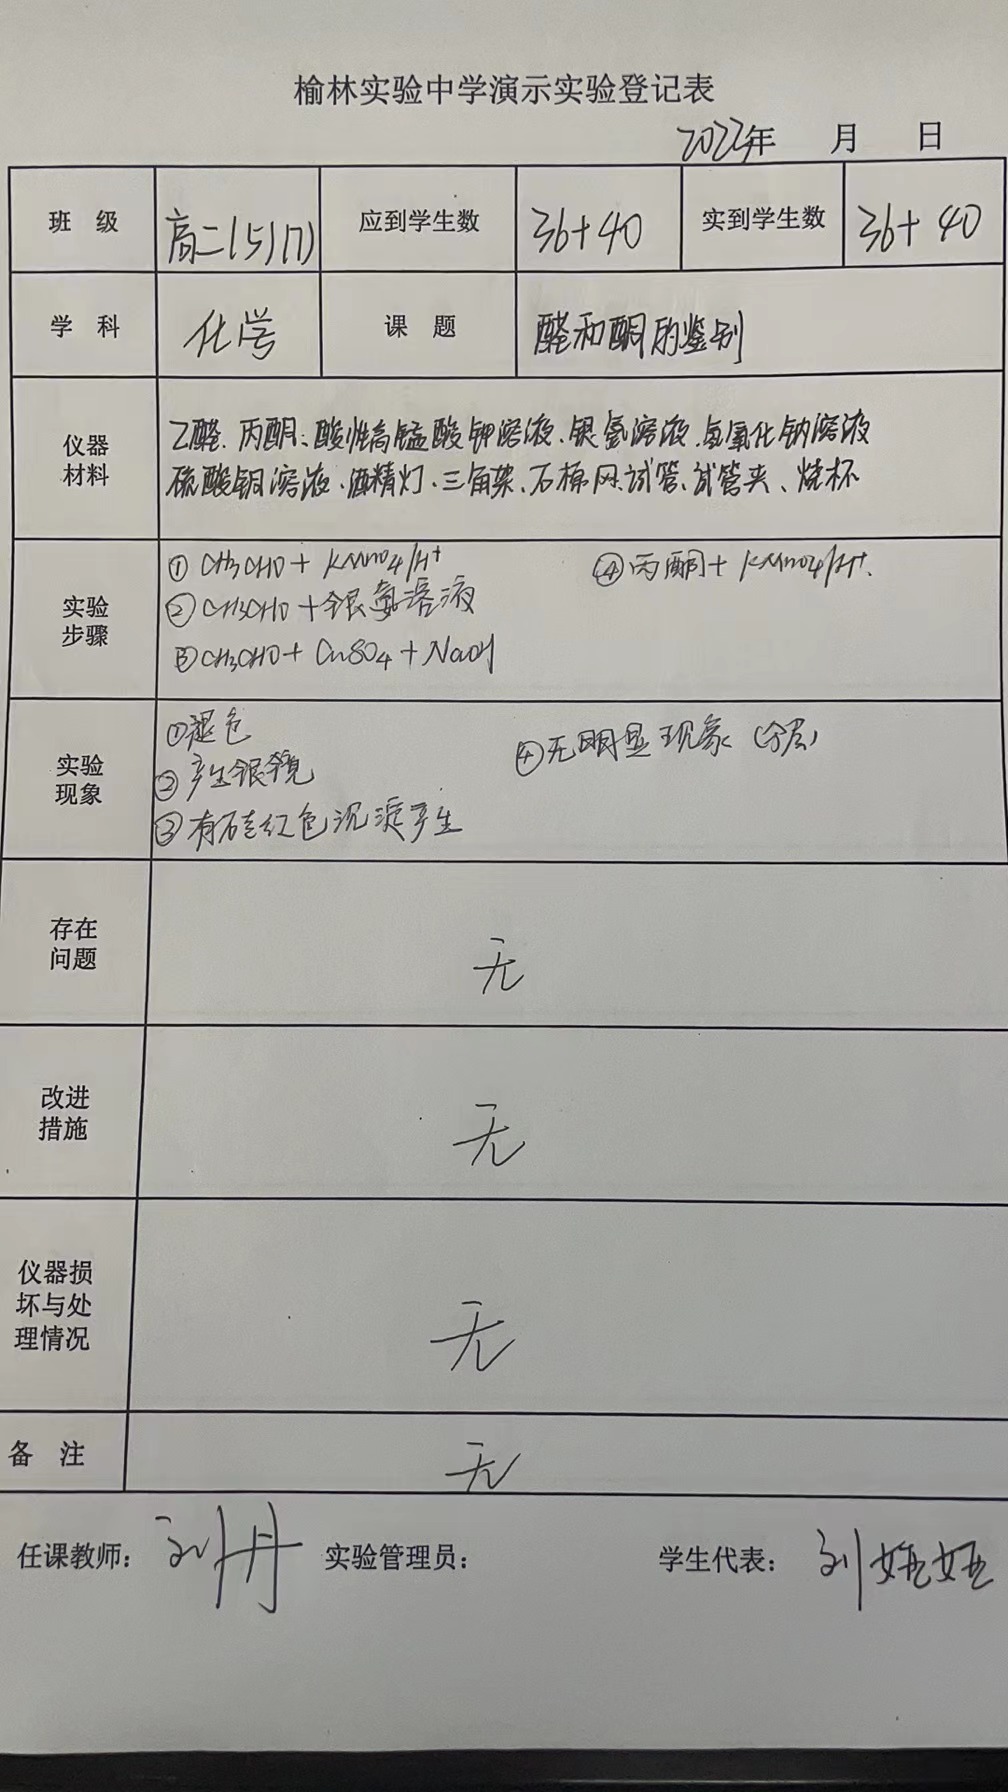 榆林实验中学演示实验登记表
2022年 月 日
班 级 高二(5)(7) 应到学生数 36+40 实到学生数 36+40
学 科 化学 课 题 醛和酮的鉴别
仪器
材料
乙醛、丙酮、酸性高锰酸钾溶液、银氨溶液、氢氧化钠溶液
硫酸铜溶液、酒精灯、三角架、石棉网、试管、试管夹、烧杯
实验
步骤
①CH3CHO+KMnO4/H+ ④丙酮+KMnO4/H+、
②CH3CHO+银氨溶液
③CH3CHO+CuSO4+NaOH
实验
现象
①褪色 ④无明显现象(分层)
②产生银镜
③有砖红色沉淀产生
存在
问题
无
改进
措施
无
仪器损
坏与处
理情况
无
备 注 无
任课教师：刘丹 实验管理员： 学生代表：刘娅娅